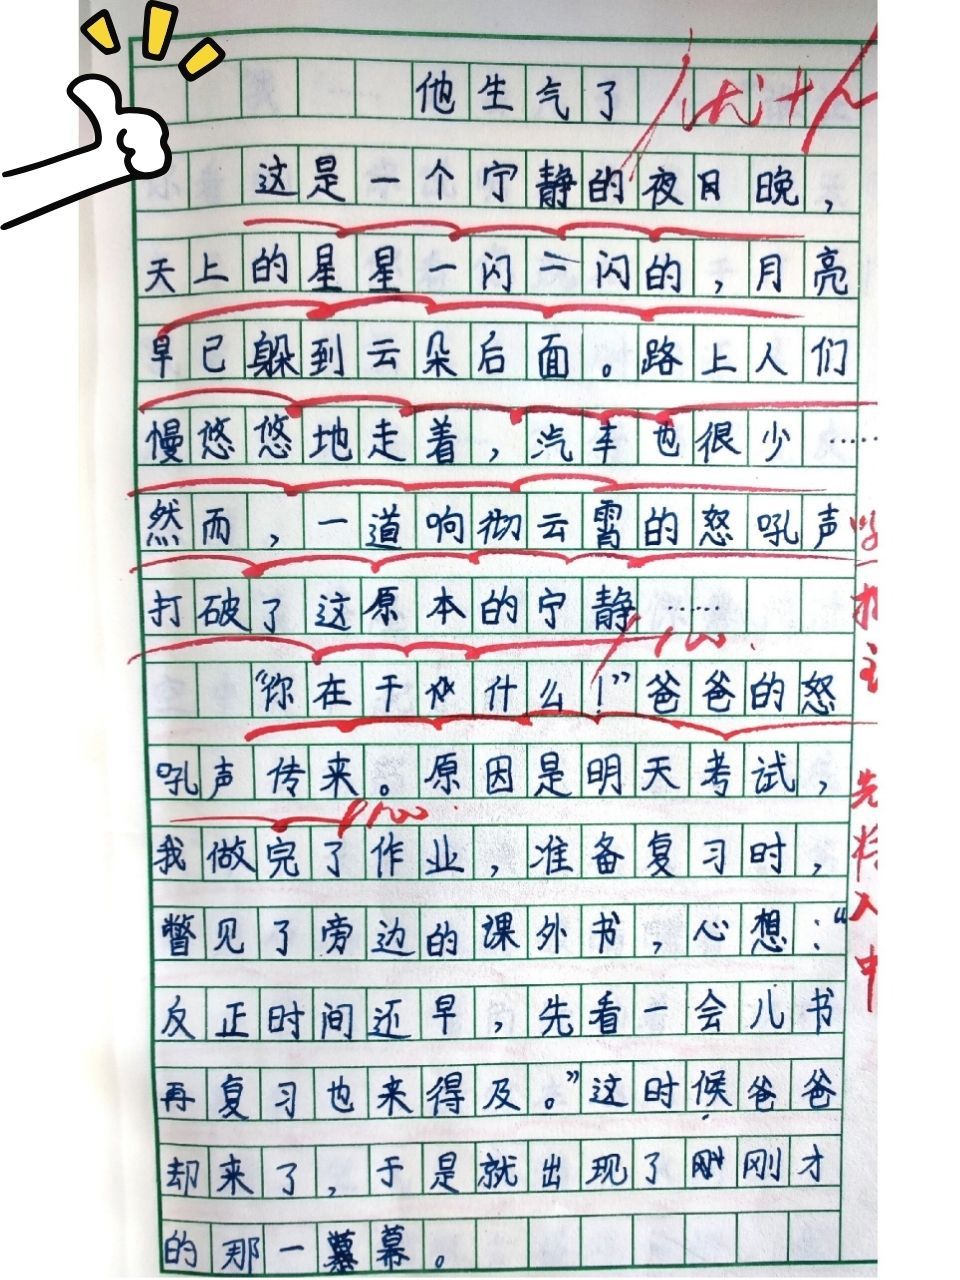 他生气了
这是一个宁静的夜晚，
天上的星星一闪一闪的，月亮
早已躲到云朵后面。路上人们
慢悠悠地走着，汽车也很少……
然而，一道响彻云霄的怒吼声
打破了这原本的宁静……
“你在干什么！”爸爸的怒
吼声传来。原因是明天考试，
我做完了作业，准备复习时，
瞥见了旁边的课外书，心想：“
反正时间还早，先看一会儿书
再复习也来得及。”这时候爸爸
却来了，于是就出现了刚才
的那一幕。